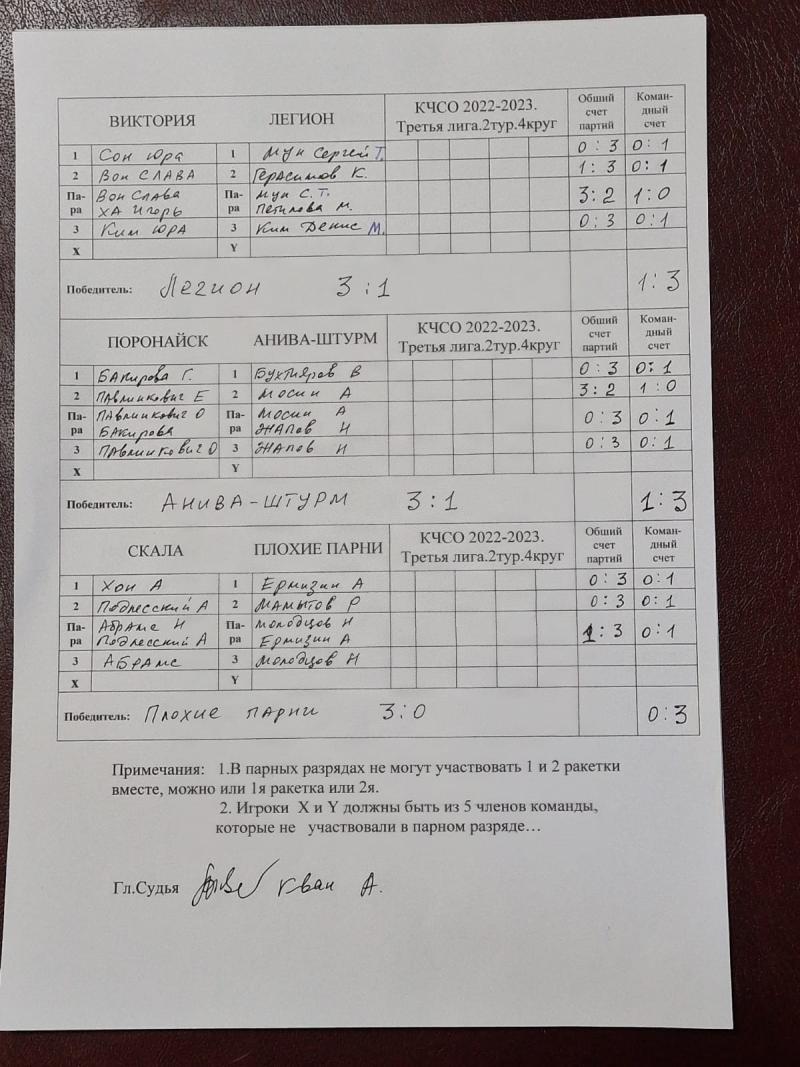 ВИКТОРИЯ ЛЕГИОН КЧСО 2022-2023. Третья лига.2тур.4круг Общий счет партий Коман-дный счет
1 Сон Юра 1 Мун Сергей Т. 0:3 0:1
2 Вон СЛАВА 2 Герасимов К. 1:3 0:1
Па-ра Вон Слава Па-ра Мун С.Т. 3:2 1:0
ХА Игорь М.
3 Ким ЮРА 3 Ким Денис М. 0:3 0:1
X Y
Победитель: Легион 3:1 1:3
ПОРОНАЙСК АНИВА-ШТУРМ КЧСО 2022-2023. Третья лига.2тур.4круг Общий счет партий Коман-дный счет
1 БАкирова Г. 1 Бухтияров В 0:3 0:1
2 ПАвлинкович Е 2 Мосин А 3:2 1:0
Па-ра ПАвлинкович О Па-ра Мосин А 0:3 0:1
БАкирова ЖАпов Н
3 ПАвлинкович О 3 ЖАпов Н 0:3 0:1
X Y
Победитель: АНИВА-ШТУРМ 3:1 1:3
СКАЛА ПЛОХИЕ ПАРНИ КЧСО 2022-2023. Третья лига.2тур.4круг Общий счет партий Коман-дный счет
1 Хон А 1 Ермизин А 0:3 0:1
2 Подлесский А 2 МАмытов Р 0:3 0:1
Па-ра АбрАмс Н Па-ра Молодцов Н 1:3 0:1
Подлесский А Ермизин А
3 АБРАмс 3 Молодцов Н
X Y
Победитель: Плохие парни 3:0 0:3
Примечания: 1.В парных разрядах не могут участвовать 1 и 2 ракетки
вместе, можно или 1я ракетка или 2я.
2. Игроки X и Y должны быть из 5 членов команды,
которые не участвовали в парном разряде…
Гл.Судья Кван А.